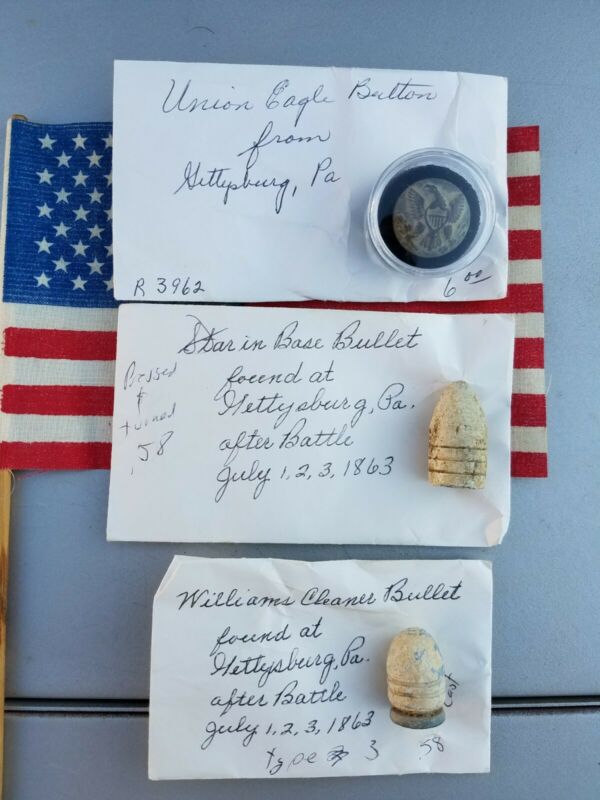 Union Eagle Button
from
Gettysburg, Pa
R 3962
6 00
Star in Base Bullet
found at
Gettysburg, Pa.
after Battle
July 1, 2, 3, 1863
Pressed
&
turned
.58
Williams Cleaner Bullet
found at
Gettysburg, Pa.
after Battle
July 1, 2, 3, 1863
type 3
58